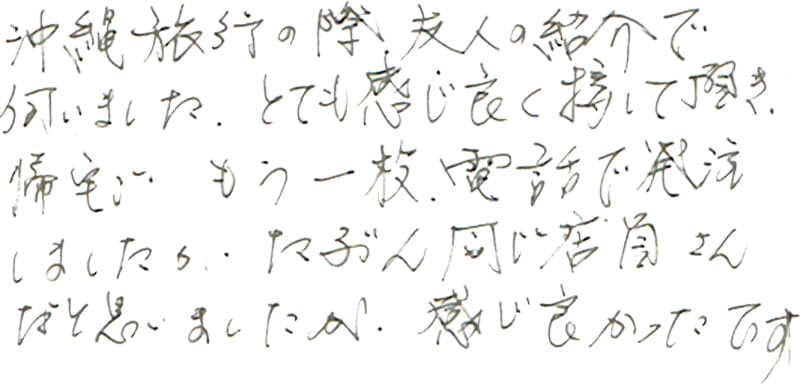 沖縄旅行の際、友人の紹介で
伺いました。とても感じ良く接して頂き、
帰宅し、もう一枚、電話で発注
しましたが、たぶん同じ店員さん
だと思いましたが、感じ良かったです